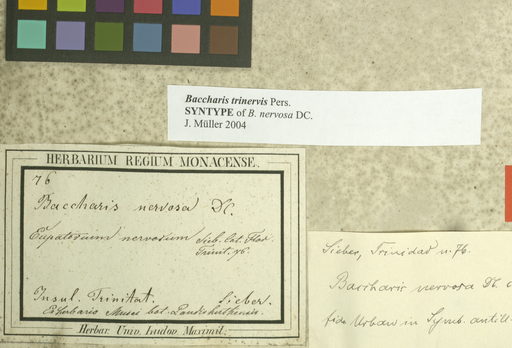 Baccharis trinervis Pers.
SYNTYPE of B. nervosa DC.
J. Müller 2004
HERBARIUM REGIUM MONACENSE.
76
Baccharis nervosa DC.
Eupatorium nervosum Sieb. Cat. Flor.
Trinit. 76.
Insul. Trinitat. Sieber.
Ex herbario Musei bot. Landishuthensis.
Herbar. Univ. Ludov. Maximil.
Sieber, Trinidad n. 76.
Baccharis nervosa DC.
fide Urban in Symb. antill.